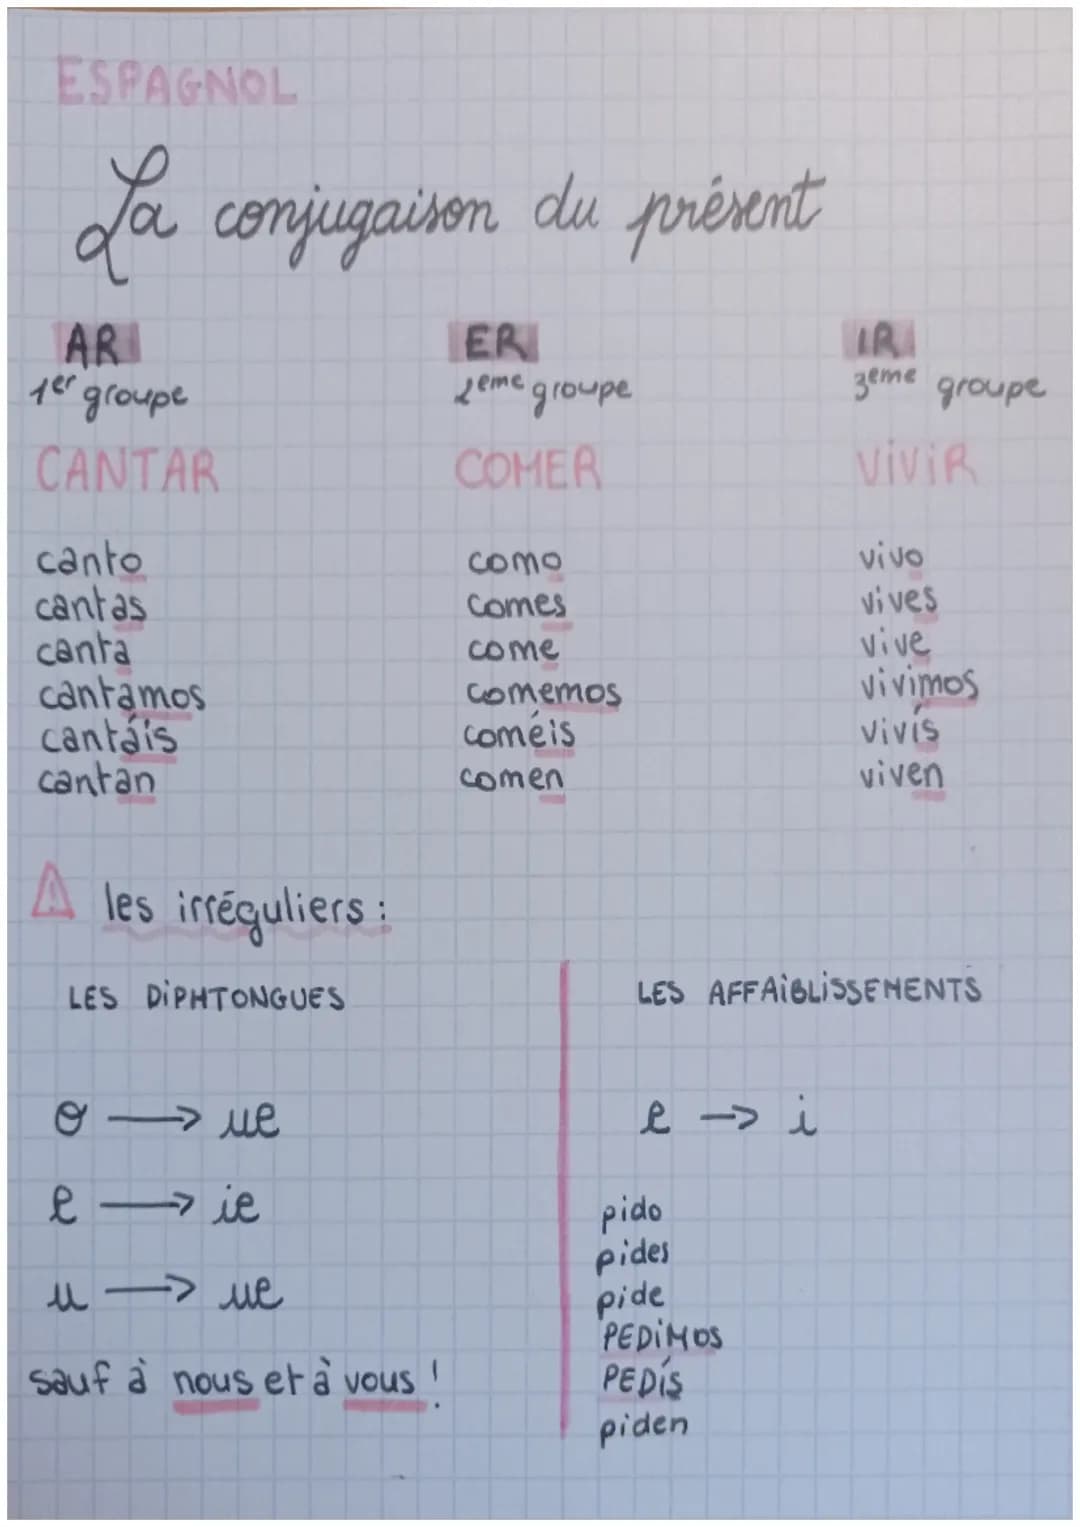 ESPAGNOL
La conjugaison du présent
AR ER IR
1er groupe 2eme groupe 3eme groupe
CANTAR COMER ViViR
canto como vivo
cantas comes vives
canta come vive
cantamos comemos vivimos
cantáis coméis vivís
cantan comen viven
les irréguliers :
LES DiPHTONGUES
o → ue
e → ie
u → ue
sauf à nous et à vous !
LES AFFAiBLiSSEMENTS
e → i
pido
pides
pide
PEDiMOS
PEDíS
piden